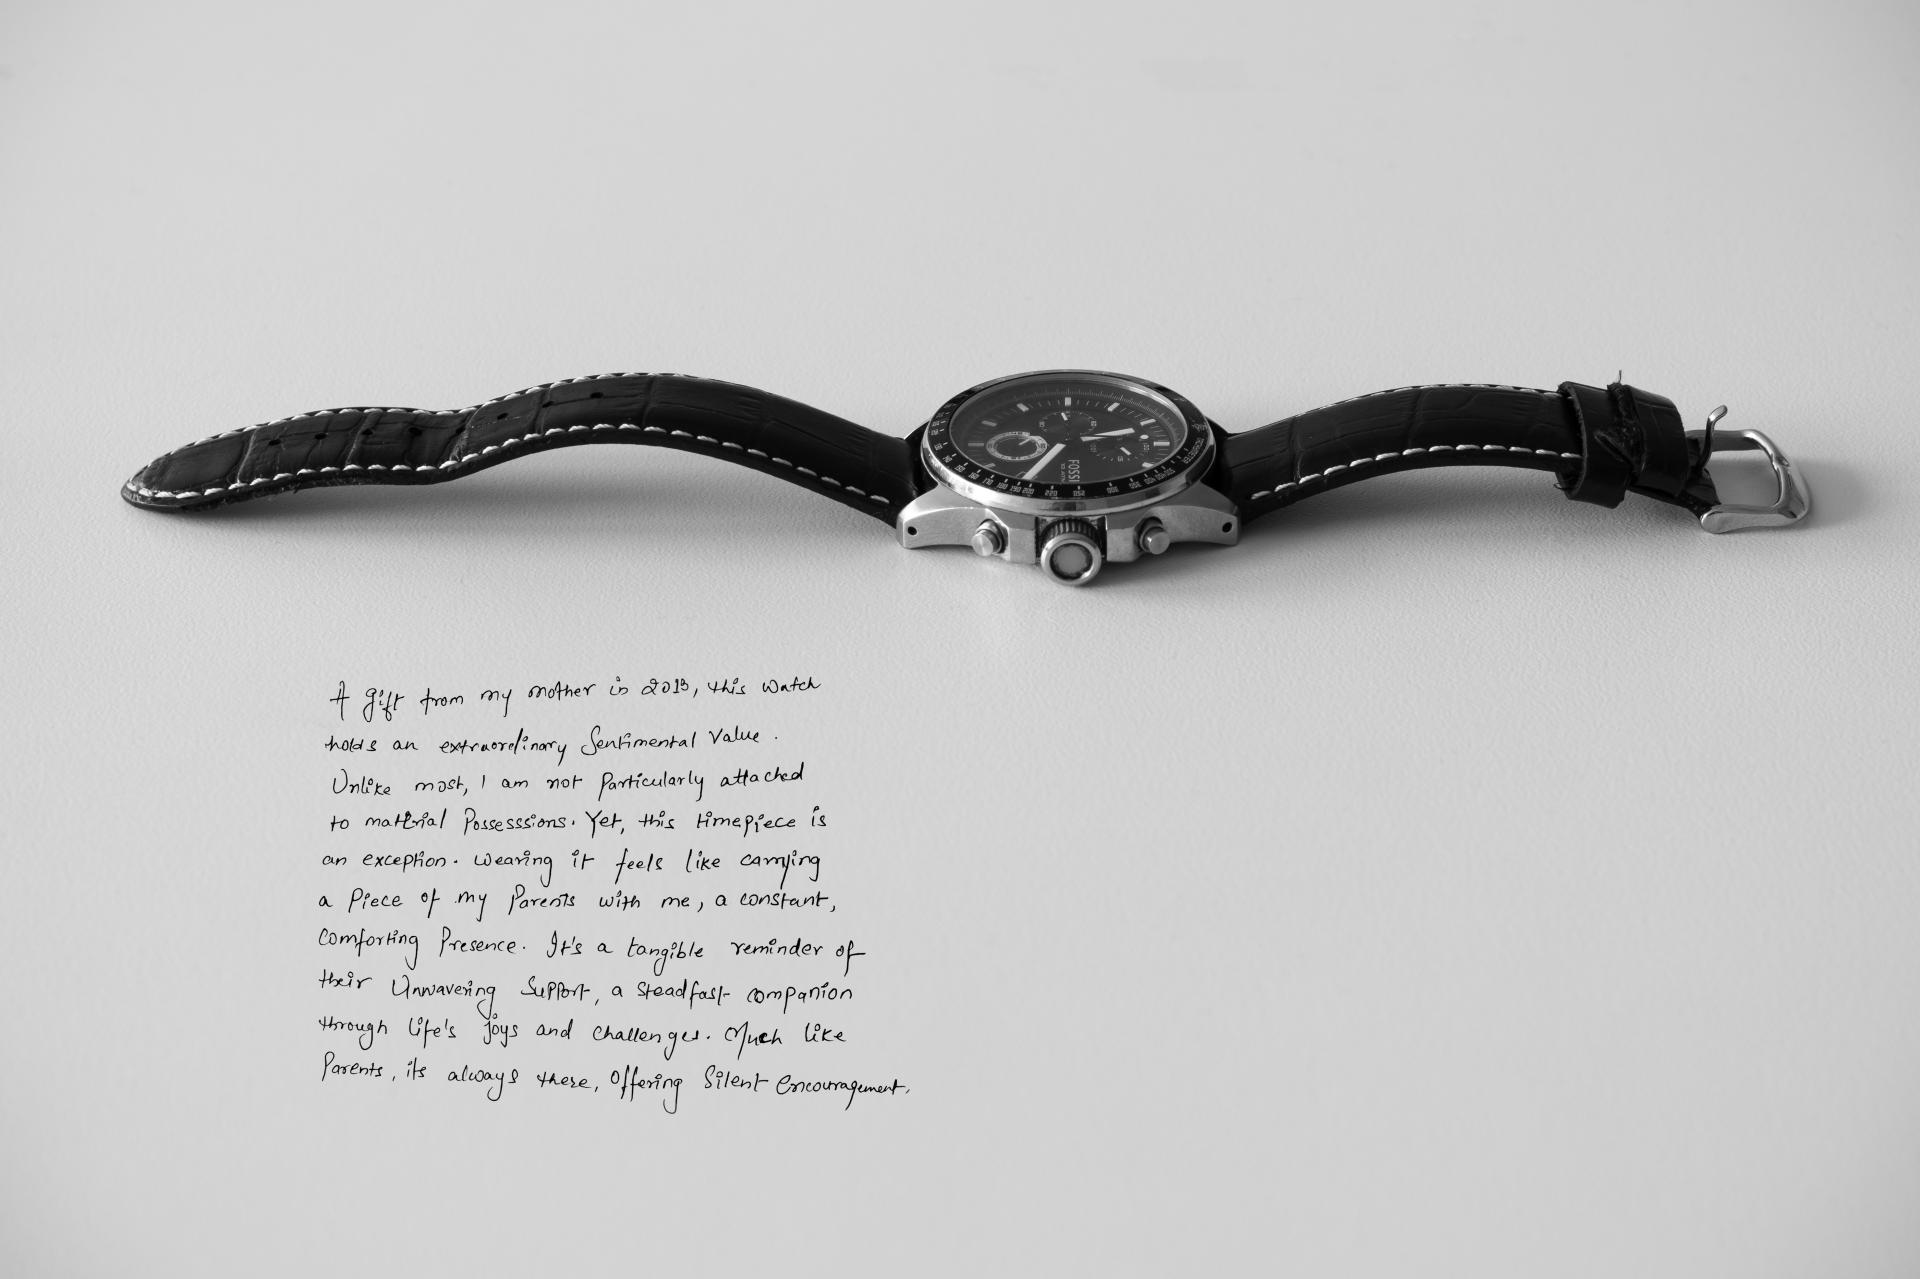 FOSSIL
A gift from my mother in 2013, this watch
holds an extraordinary Sentimental Value.
Unlike most, I am not particularly attached
to material Possesssions. Yet, this timepiece is
an exception. Wearing it feels like carrying
a Piece of my Parents with me, a constant,
Comforting Presence. It's a tangible reminder of
their Unwavering Support, a Steadfast companion
through life's joys and challenges. Much like
Parents, its always there, offering Silent encouragement.